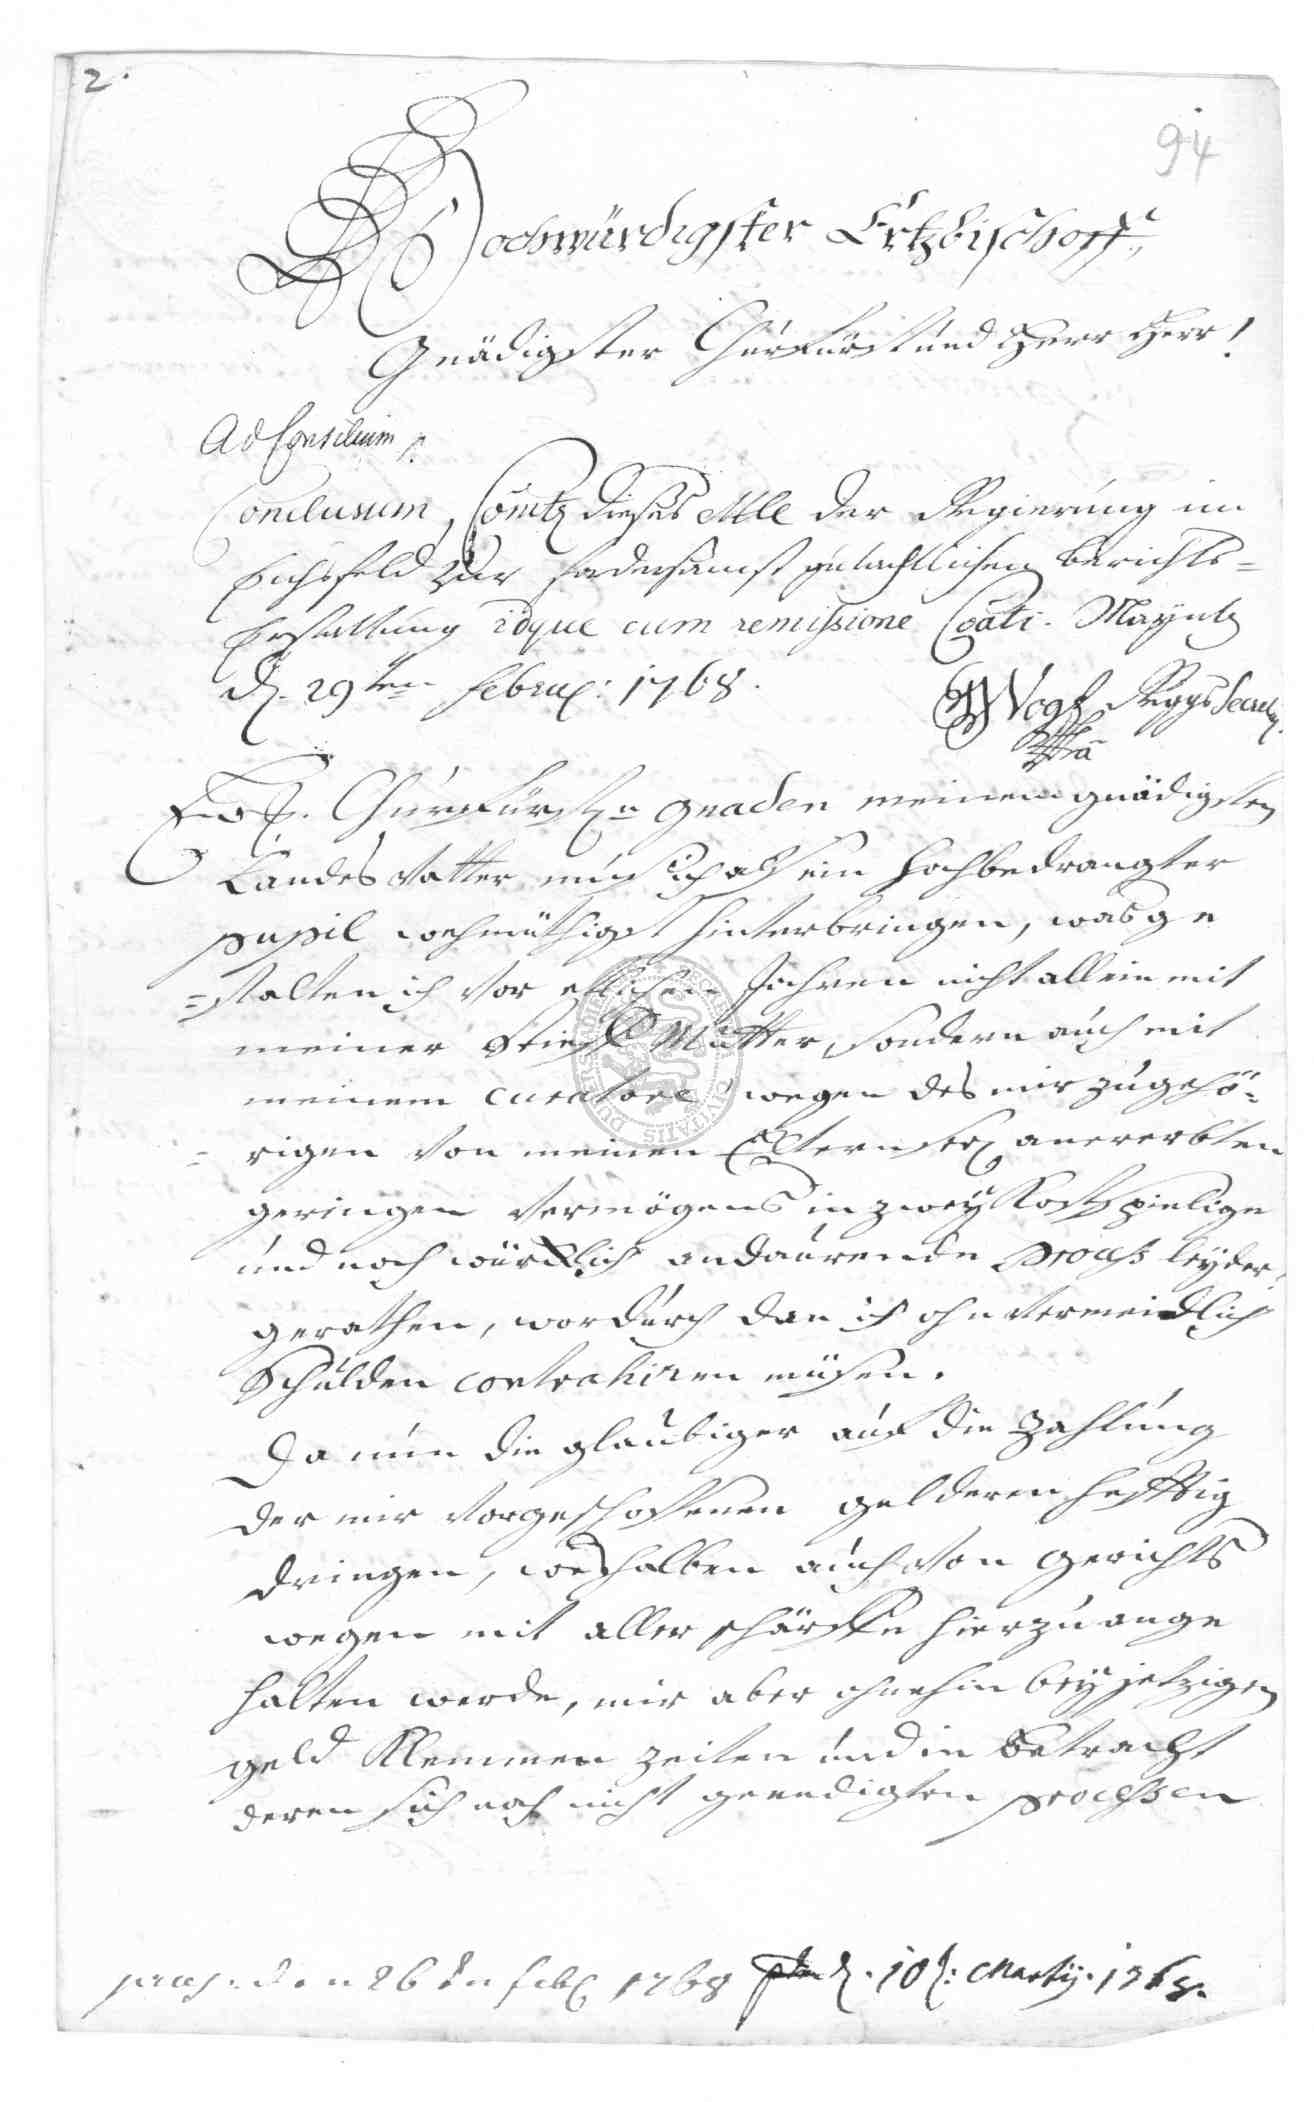 2.
94
Hochwürdigster Ertzbischoff,
Gnädigster Churfürst und Herr Herr!
Ad Consilium
Conclusum, Comtz dieses Mle der Regierung im
Eichsfeld zur fordersamst gutachtlichen berichts=
Erstattung idque cum remissione Coati. Mayntz
d. 29ten Febru: 1768.
Vogt RggsSecret
Ew. Churfürstn gnaden meinem gnädigsten
Landes Vatter muß ich alß ein hochbedrangter
pupil wehmüthigst hinterbringen, was ge
=stalten ich vor etlichen Jahren nicht allein mit
meiner Stieff Mutter, sondern auch mit
meinem curatore wegen des mir zugehö=
=rigen von meinen Eltern seel anererbten
geringen Vermögens in zwey Kostspielige
und noch würcklich andaurende process leyder!
gerathen, wordurch dan ich ohnvermeidlich
Schulden contrahiren müsen.
Da nun die glaubiger auf die Zahlung
der mir vorgeschossenen gelderen hefftig
dringen, weshalben auch von gerichts
wegen mit aller schärffe hierzu ange
halten werde, mir aber ohnehin bey jetzigen
geld Klemmen zeiten und in betracht
deren sich noch nicht geendigten processen
praes. den 26ten feb 1768 d. 10t: Martij. 1768.
SOCIETAS CIVITATIS DUDERSTADIENSIS